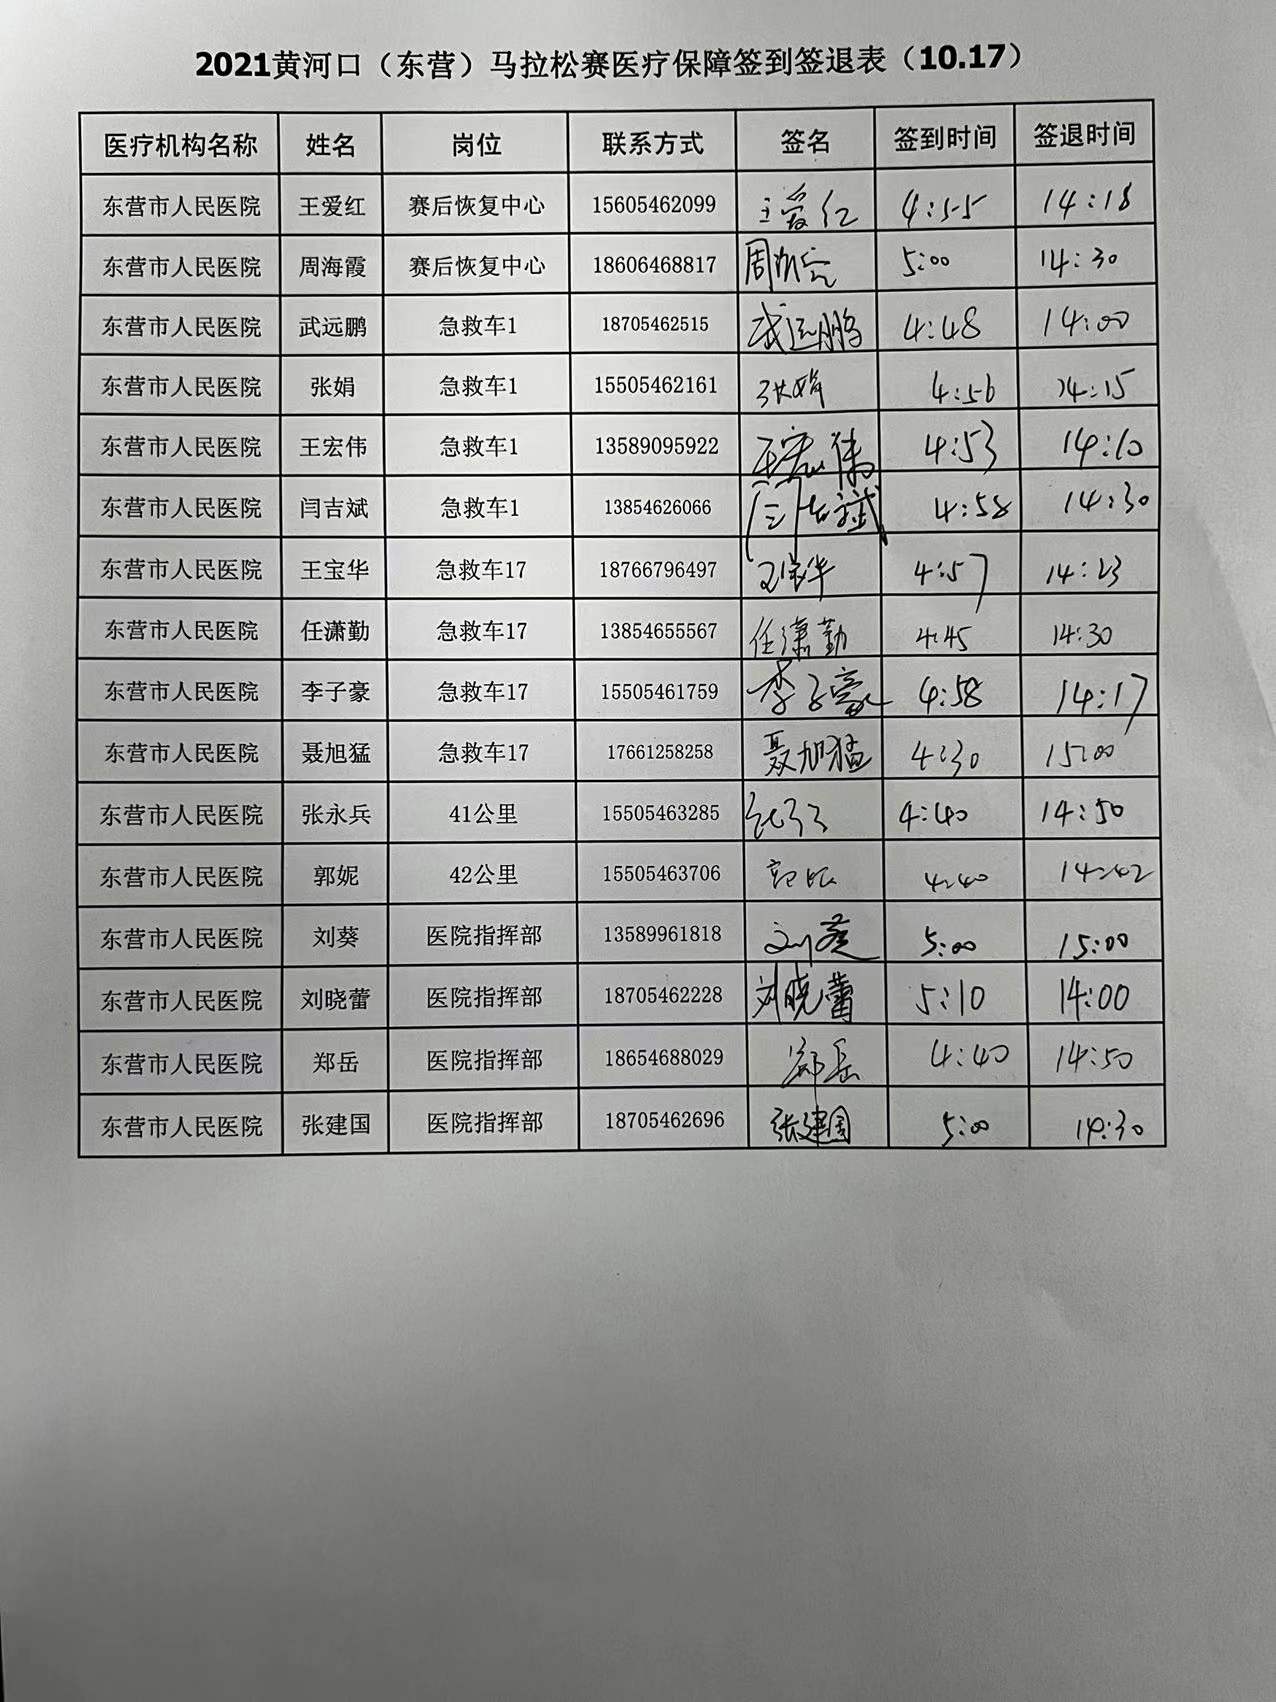 2021黄河口（东营）马拉松赛医疗保障签到签退表（10.17）
医疗机构名称 姓名 岗位 联系方式 签名 签到时间 签退时间
东营市人民医院 王爱红 赛后恢复中心 15605462099 王爱红 4:55 14:18
东营市人民医院 周海霞 赛后恢复中心 18606468817 周海霞 5:00 14:30
东营市人民医院 武远鹏 急救车1 18705462515 武远鹏 4:48 14:00
东营市人民医院 张娟 急救车1 15505462161 张娟 4:56 14:15
东营市人民医院 王宏伟 急救车1 13589095922 王宏伟 4:53 14:10
东营市人民医院 闫吉斌 急救车1 13854626066 闫吉斌 4:58 14:30
东营市人民医院 王宝华 急救车17 18766796497 王宝华 4:57 14:23
东营市人民医院 任潇勤 急救车17 13854655567 任潇勤 4:45 14:30
东营市人民医院 李子豪 急救车17 15505461759 李子豪 4:58 14:17
东营市人民医院 聂旭猛 急救车17 17661258258 聂旭猛 4:30 15:00
东营市人民医院 张永兵 41公里 15505463285 4:40 14:50
东营市人民医院 郭妮 42公里 15505463706 郭妮 4:40 14:42
东营市人民医院 刘葵 医院指挥部 13589961818 刘葵 5:00 15:00
东营市人民医院 刘晓蕾 医院指挥部 18705462228 刘晓蕾 5:10 14:00
东营市人民医院 郑岳 医院指挥部 18654688029 郑岳 4:40 14:50
东营市人民医院 张建国 医院指挥部 18705462696 张建国 5:00 14:30